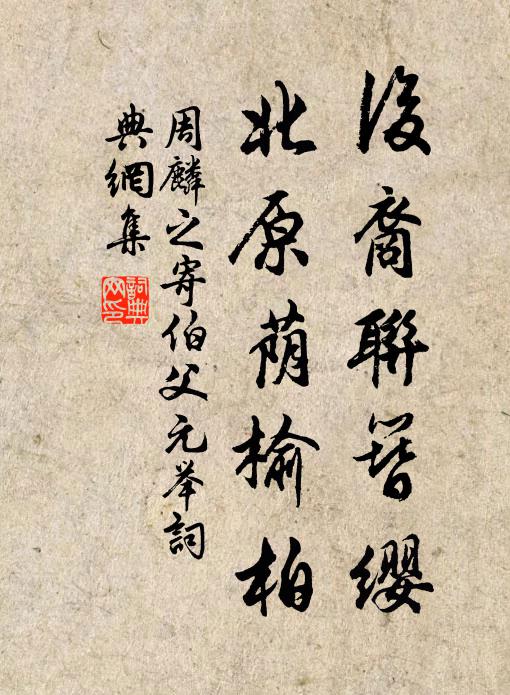 後裔聯簪纓
北原荫榆柏
周麟之寄伯父元举詞
典網集
詞典
网印